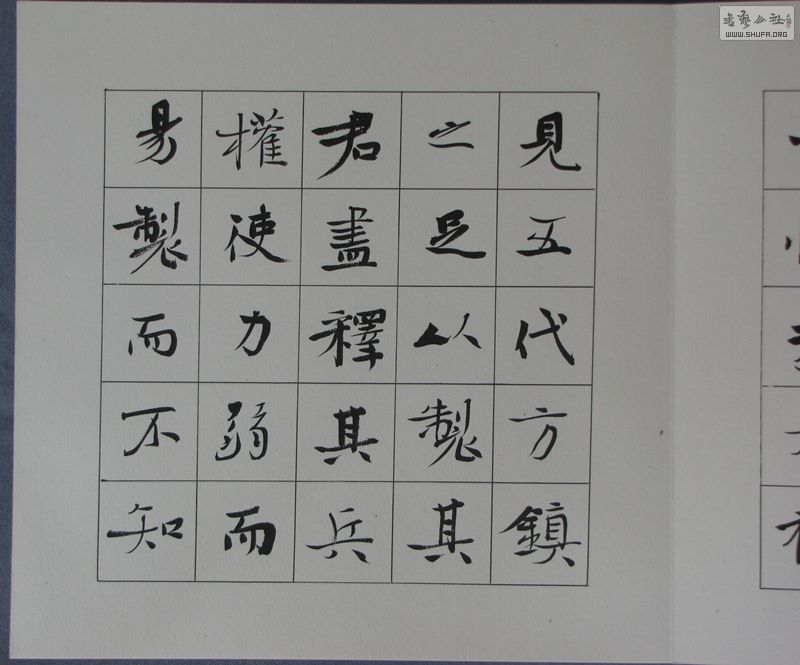 見五代方鎮
之足以製其
君盡釋其兵
權使力弱而
易製而不知
書藝公社
WWW.SHUFA.ORG